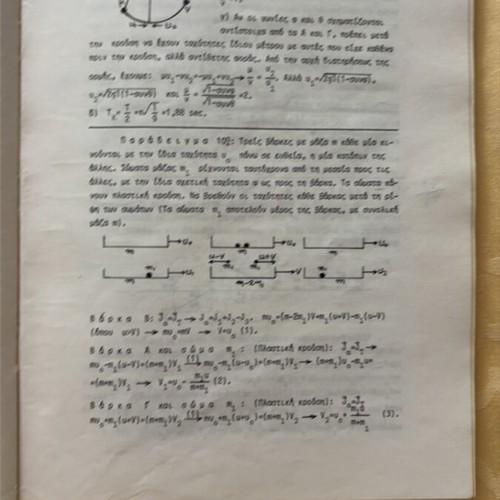 γ) Αν οι γωνίες φ και θ σχηματίζονται
αντίστοιχα από τα Α και Γ, πρέπει μετά
την κρούση να έχουν ταχύτητες ίδιου μέτρου με αυτές που είχε καθένα
πριν την κρούση, αλλά αντίθετης φοράς. Από την αρχή διατήρησης της
ορμής, έχουμε: μυ₁-νυ₂=-μυ₁+νυ₂ → μ/ν = υ₂/υ₁. Αλλά υ₁=√2gl(1-συνφ),
υ₂=√2gl(1-συνθ) και μ/ν = √1-συνθ/√1-συνφ =2.
δ) Τ = Τ/2 =π√l/g =1,88 sec.
Παράδειγμα 10ο: Τρείς βάρκες με μάζα m κάθε μία κι-
νούνται με την ίδια ταχύτητα υ₀ πάνω σε ευθεία, η μία κατόπιν της
άλλης. Σώματα μάζας m₁ ρίχνονται ταυτόχρονα από τη μεσαία προς τις
άλλες, με την ίδια σχετική ταχύτητα υ ως προς τη βάρκα. Τα σώματα κά-
νουν πλαστική κρούση. Να βρεθούν οι ταχύτητες κάθε βάρκας μετά τη ρί-
ψη των σωμάτων (Τα σώματα m₁ αποτελούν μέρος της βάρκας, με συνολική
μάζα m).
m υ₀ m υ₀ m υ₀
m₁ m υ₁ υ-V m₁ m₁ υ+V m-2m₁ V m₁ m υ₂
Βάρκα Β: J₀=Jτ → J₀=J₁+J₂-J₃, mυ₀=(m-2m₁)V+m₁(υ+V)-m₁(υ-V)
(όπου υ>V) → mυ₀=mV → V=υ₀ (1).
Βάρκα Α και σώμα m₁: (Πλαστική κρούση): J₀=Jτ →
mυ₀-m₁(υ-V)=(m+m₁)V₁ (1)→ mυ₀-m₁(υ-υ₀)=(m+m₁)V₁ → (m+m₁)υ₀-m₁υ=
=(m+m₁)V₁ → V₁=υ₀- m₁υ/m+m₁ (2).
Βάρκα Γ και σώμα m₁: (Πλαστική κρούση): J₀=Jτ
mυ₀+m₁(υ+V)=(m+m₁)V₂ (1)→ mυ₀+m₁(υ+υ₀)=(m+m₁)V₂ → V₂=υ₀+ m₁υ/m+m₁ (3).